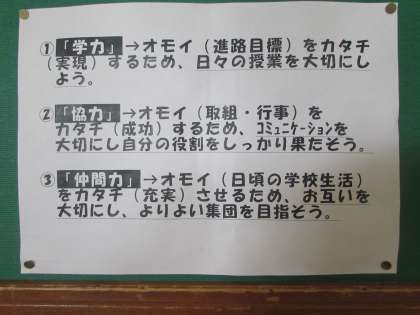 ①「学力」→オモイ（進路目標）をカタチ
（実現）するため、日々の授業を大切にし
よう。
②「協力」→オモイ（取組・行事）を
カタチ（成功）するため、ｺﾐｭﾆｹｰｼｮﾝを
大切にし自分の役割をしっかり果たそう。
③「仲間力」→オモイ（日頃の学校生活）
をカタチ（充実）させるため、お互いを
大切にし、よりよい集団を目指そう。